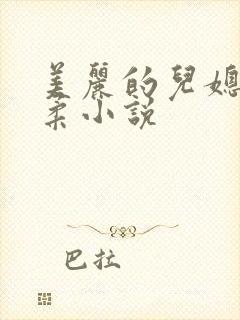 美麗的兒媳
柔小説
巴拉